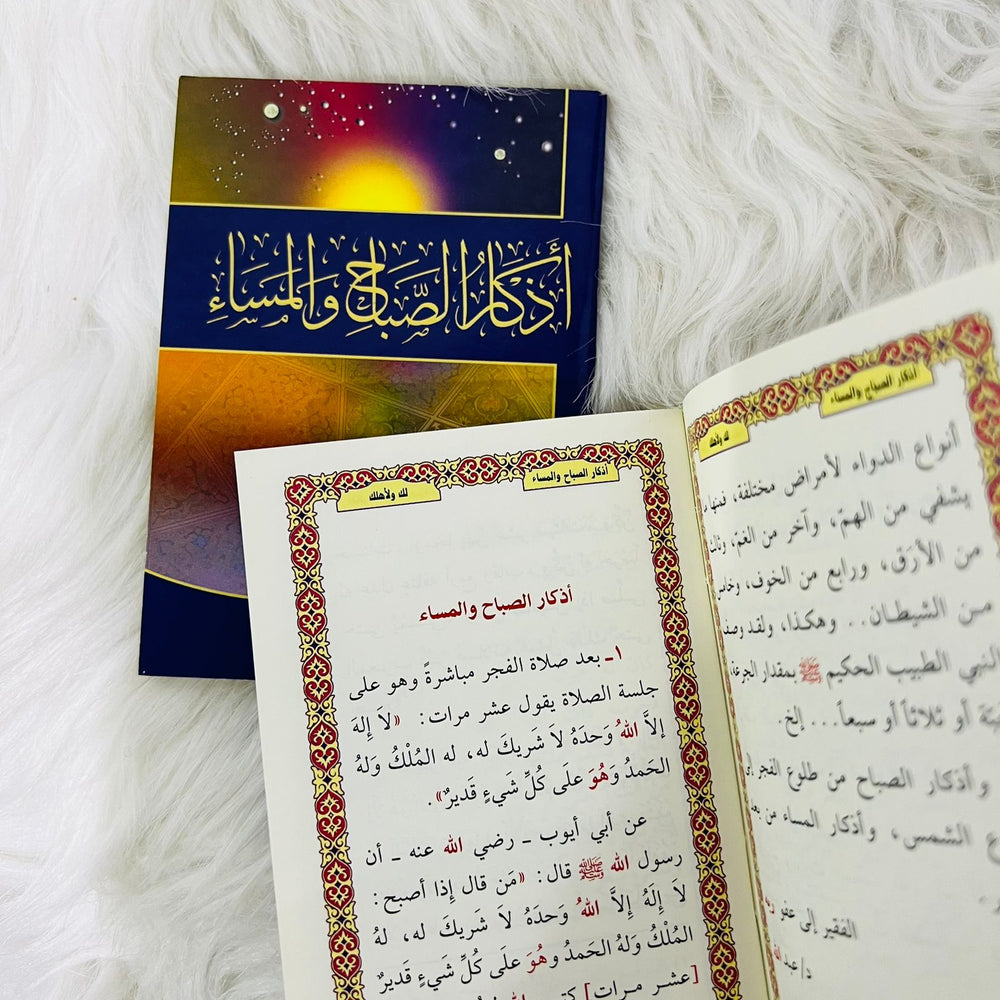 أَذكَارُ الصَّبَاحِ وَالمَسَاءِ
أذكار الصباح والمساء
لك ولأهلك
أذكار الصباح والمساء
أنواع الدواء لأمراض مختلفة، فمنها
يشفي من الهمّ، وآخر من الغمّ، وثالث
من الأرَق، ورابع من الخوف، وخامس
من الشيطان.. وهكذا، ولقد وصف
النبي الطبيب الحكيم ﷺ بمقدار الجرعة،
أو ثلاثاً أو سبعاً... إلخ.
وأذكار الصباح من طلوع الفجر إلى
الشمس، وأذكار المساء من بعد
الفقير إلى عفو
د/عبد الله
لك ولأهلك
أذكار الصباح والمساء
١ـ بعد صلاة الفجر مباشرةً وهو على
جلسة الصلاة يقول عشر مرات: «لاَ إِلهَ
إلاَّ اللهُ وَحدَهُ لاَ شَريكَ له، له المُلْكُ وَلهُ
الحَمدُ وَهُوَ علَى كُلِّ شَيءٍ قَديرٌ».
عن أبي أيوب ـ رضي الله عنه ـ أن
رسول الله ﷺ قال: «مَن قال إذا أصبح:
لاَ إِلَهُ إِلاَّ اللهُ وَحدَهُ لاَ شَريكَ له، لهُ
المُلْكُ وَلهُ الحَمدُ وهُوَ علَى كُلِّ شَيءٍ قَديرٌ
[عشر مرات]